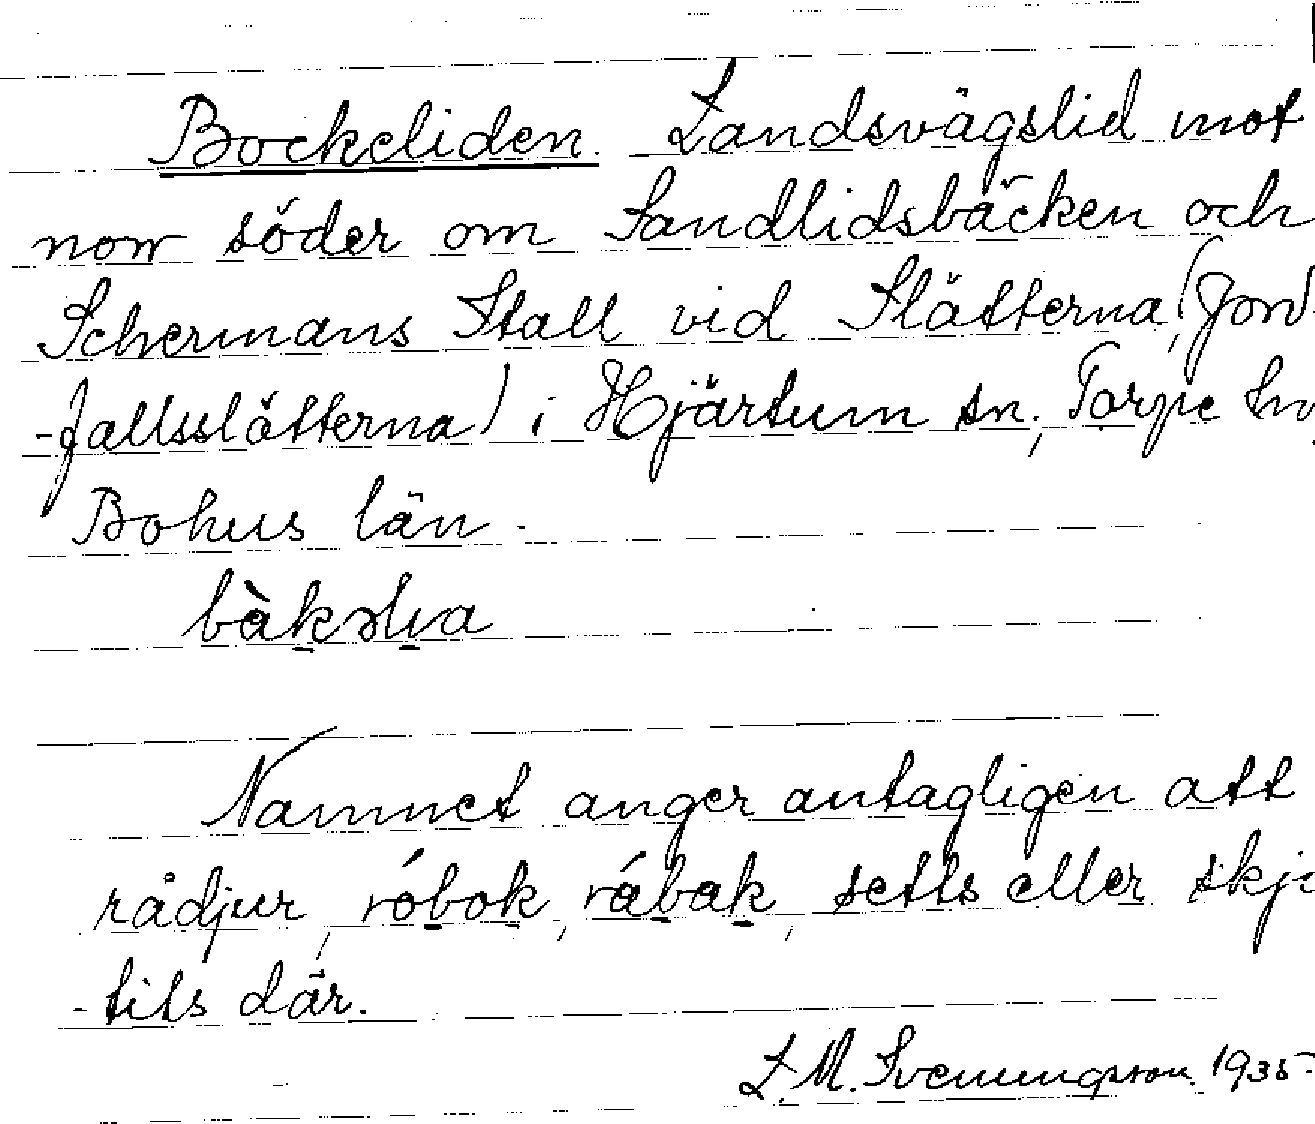 Bockeliden. Landsvägslid mot
norr söder om Sandlidsbäcken och
Schermans Stall vid Slätterna (Jord-
-fallsslätterna) i Hjärtum sn, Torpe hd,
Bohus län.
bàkəlıa
Namnet anger antagligen att
rådjur, róbok, rábak, setts eller skju
-tits där.
L. M. Svenungsson 1935.